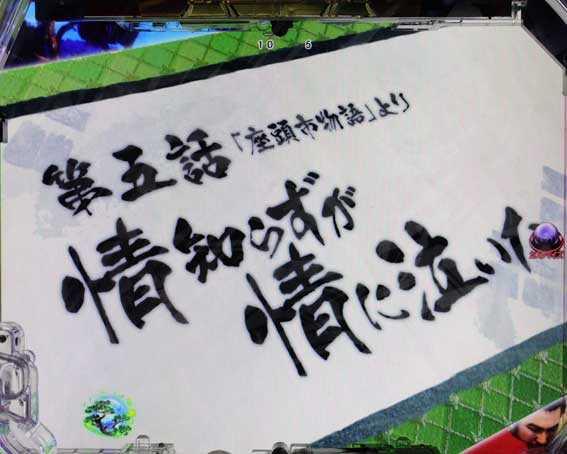 10 5
第五話「座頭市物語」より
情知らずが
情に泣いた